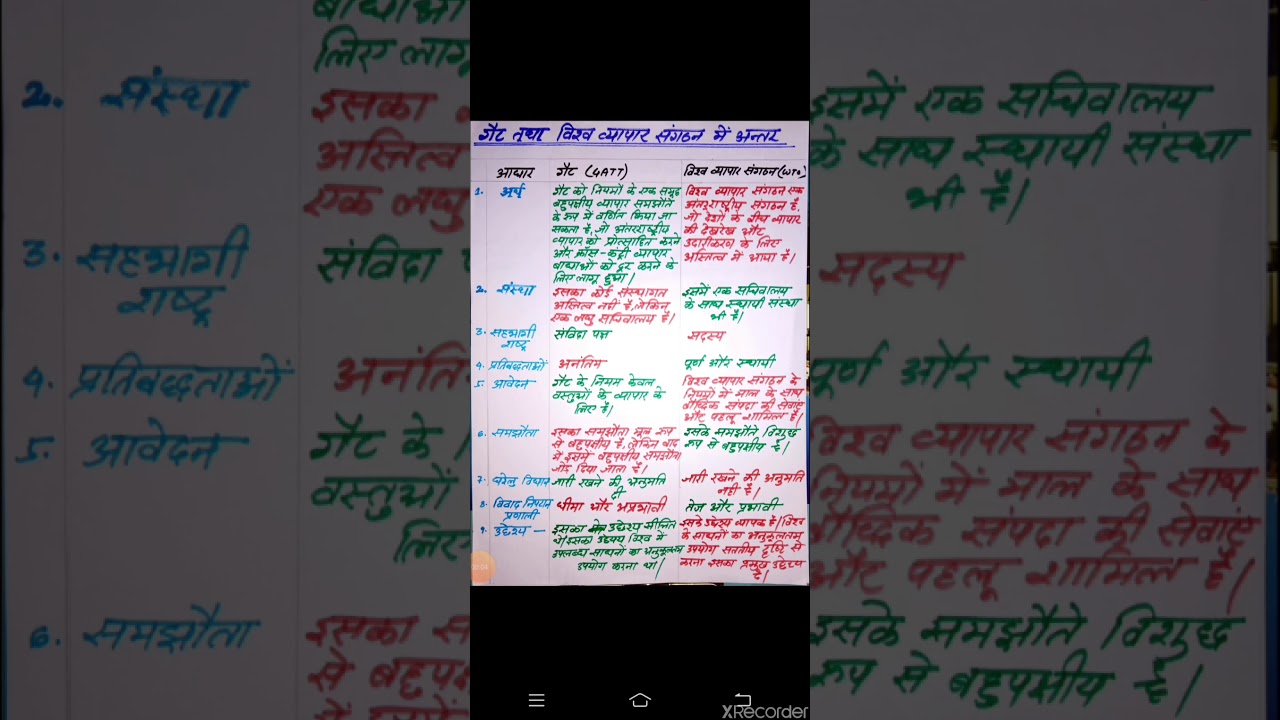 गैट तथा विश्व व्यापार संगठन में अन्तर
आधार गैट (GATT) विश्व व्यापार संगठन (WTO)
1. अर्थ
गैट को नियमों के एक समूह
बहुपक्षीय व्यापार समझौते
के रूप में वर्णित किया जा
सकता है, जो अंतरराष्ट्रीय
व्यापार को प्रोत्साहित करने
और क्रॉस-कंट्री व्यापार
बाधाओं को दूर करने के
लिए लागू हुआ।
विश्व व्यापार संगठन एक
अंतरराष्ट्रीय संगठन है,
जो देशों के बीच व्यापार
की देखरेख और
उदारीकरण के लिए
अस्तित्व में आया है।
2. संस्था
इसका कोई संस्थागत
अस्तित्व नहीं है, लेकिन
एक लघु सचिवालय है।
इसमें एक सचिवालय
के साथ स्थायी संस्था
भी है।
3. सहभागी
राष्ट्र
संविदा पक्ष
सदस्य
4. प्रतिबद्धताओं
अनंतिम
पूर्ण और स्थायी
5. आवेदन
गैट के नियम केवल
वस्तुओं के व्यापार के
लिए है।
विश्व व्यापार संगठन के
नियमों में माल के साथ
बौध्दिक संपदा की सेवाएं
और पहलू शामिल है।
6. समझौता
इसका समझौता मूल रूप
से बहुपक्षीय है, लेकिन बाद
में इसमें बहुपक्षीय समझौता
जोड़ दिया जाता है।
इसके समझौते विशुद्ध
रूप से बहुपक्षीय है।
7. घरेलु विधान
जारी रखने की अनुमति
दी
जारी रखने की अनुमति
नहीं है।
8. विवाद निपटान
प्रणाली
धीमा और अप्रभावी
तेज और प्रभावी
9. उद्देश्य —
इसका उद्देश्य सीमित
था। इसका उद्देश्य विश्व में
उपलब्ध साधनों का अनुकूलतम
उपयोग करना था।
इसके उद्देश्य व्यापक है। विश्व
के साधनों का अनुकूलतम
उपयोग सततीय दृष्टि से
करना इसका प्रमुख उद्देश्य
है।
01:04
XRecorder